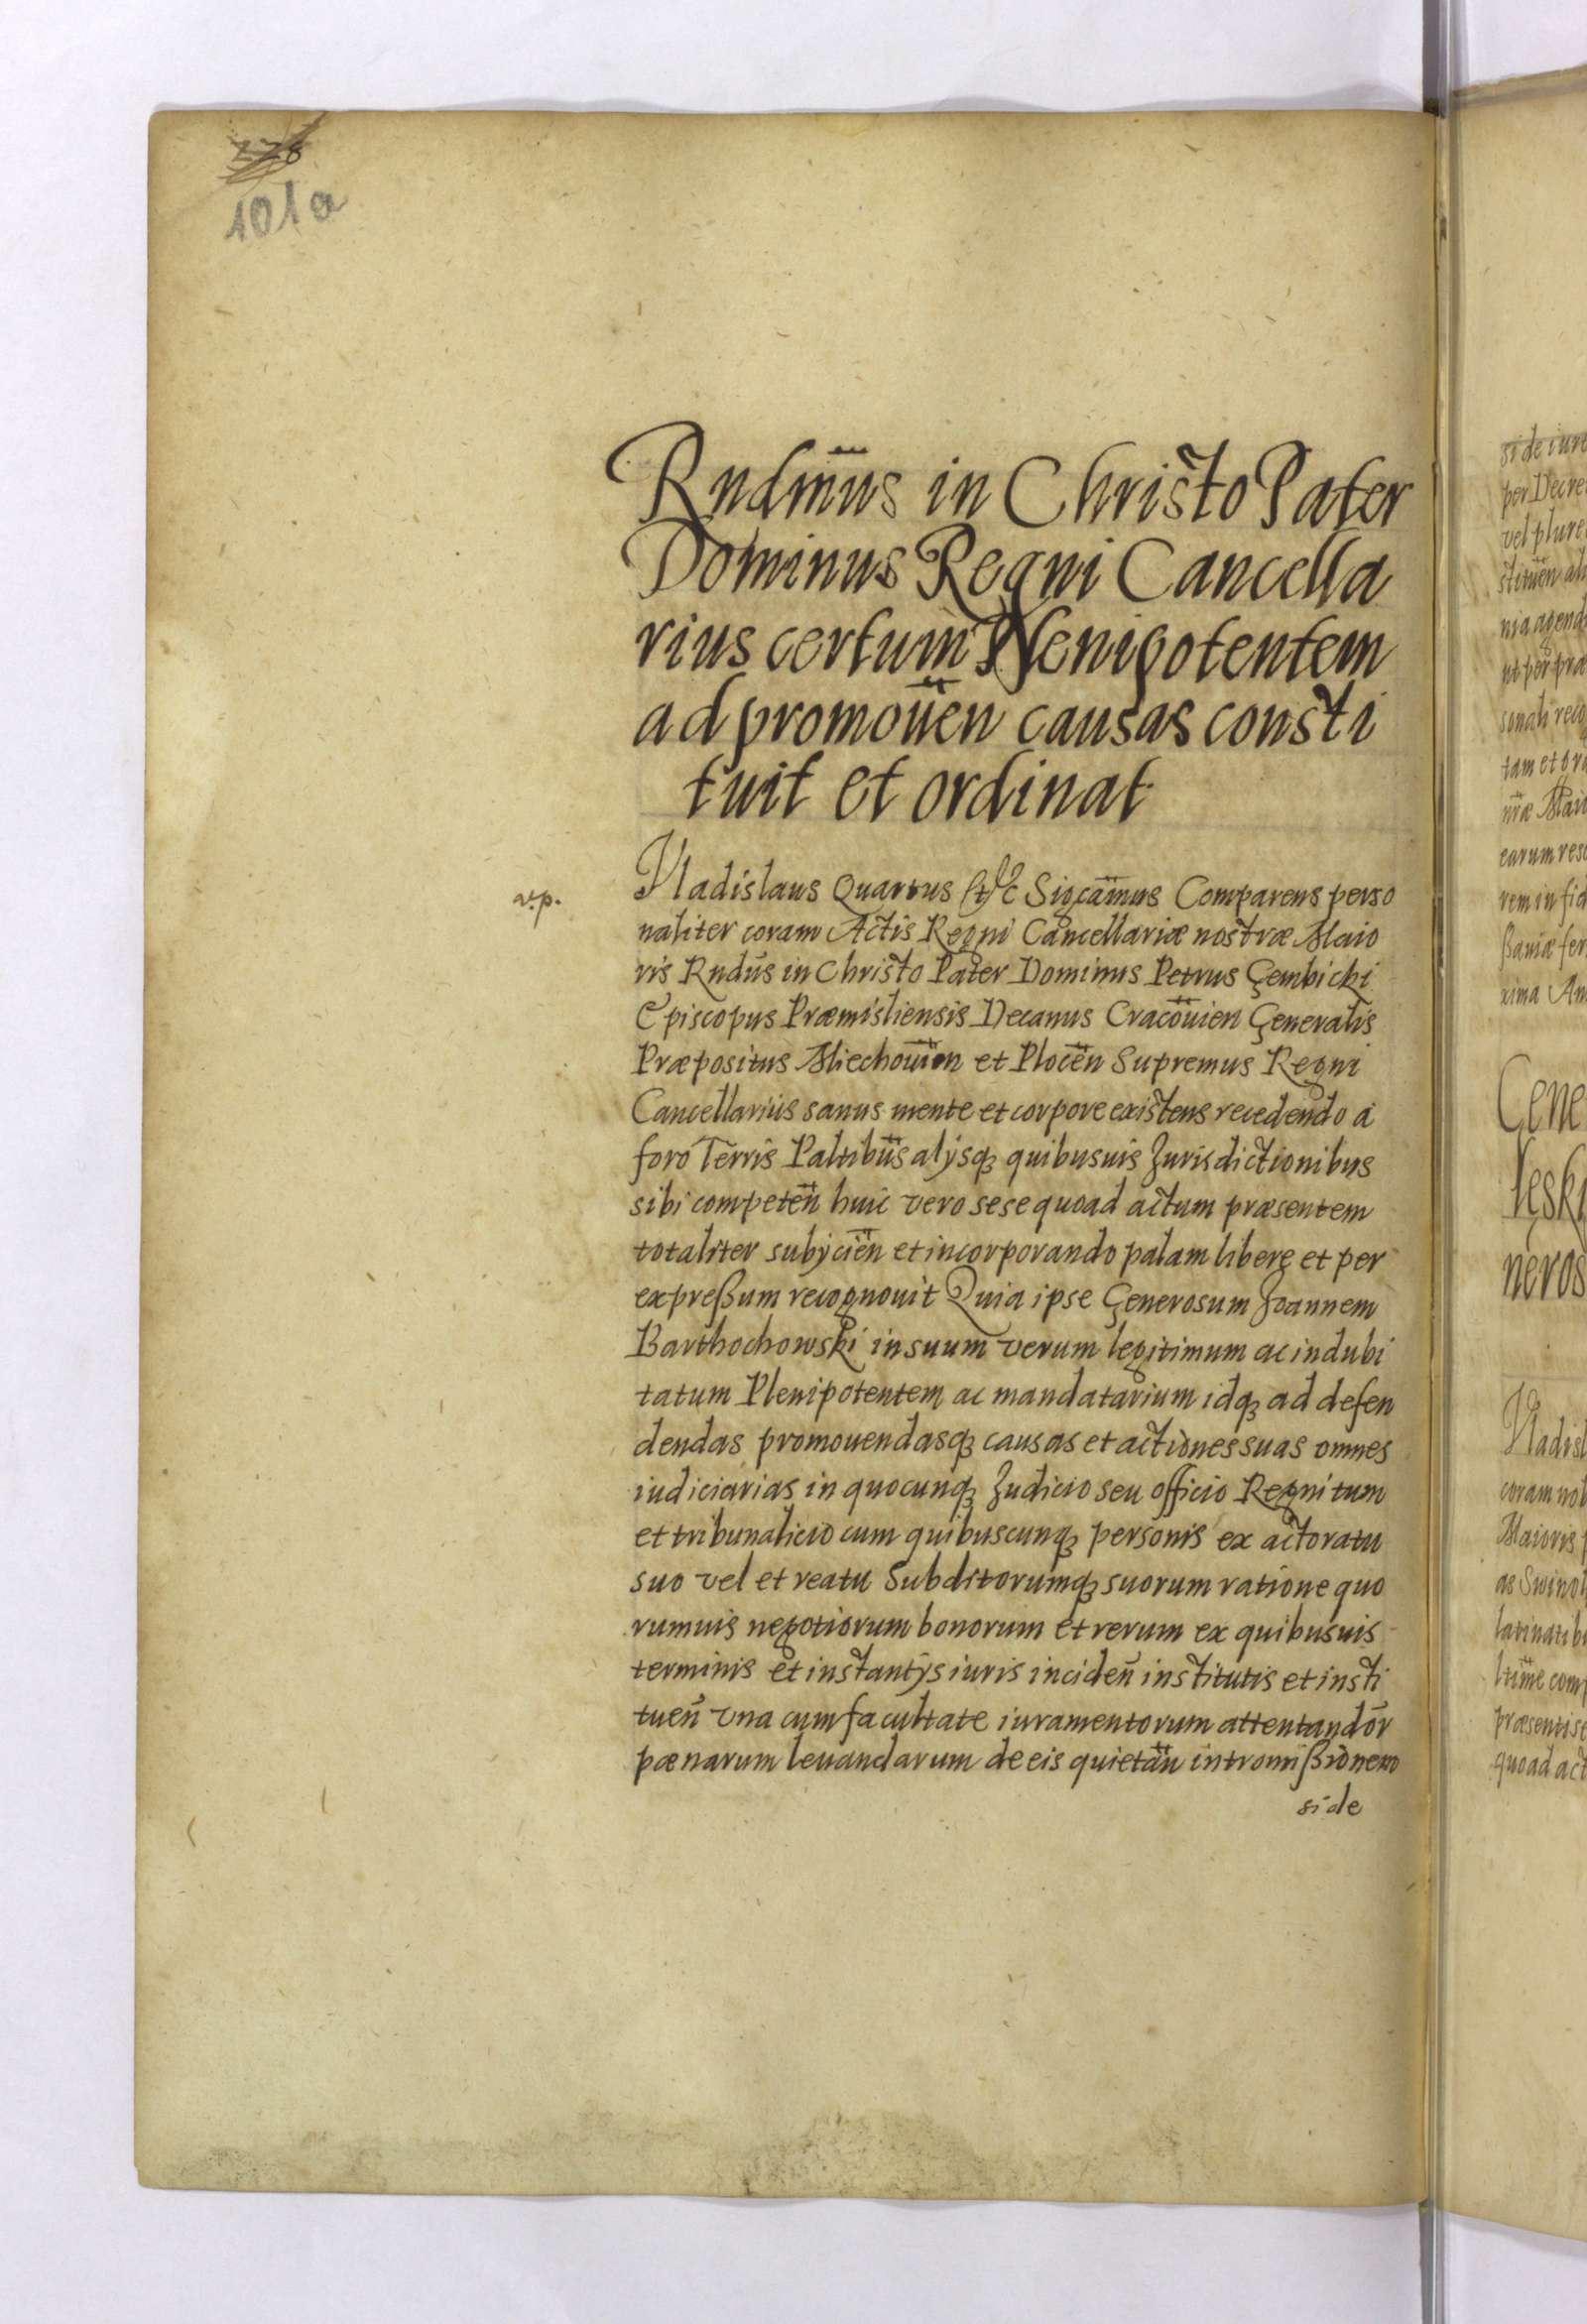 228
101a
Rndm̃us in Christo Pater
Dominus Regni Cancella
rius certum Plenipotentem
ad promoũen causas consti
tuit et ordinat
Vladislaus Quartus &c Sigcam̃us Comparens perso
naliter coram Actis Regni Cancellariæ nostræ Maio
ris Rndũs in Christo Pater Dominus Petrus Gembicki
Episcopus Præmisliensis Decanus Cracoũien Generalis
Præpositus Miechoũien et Plocen̄ Supremus Regni
Cancellarius sanus mente et corpore existens recedendo a
foro Terris̄ Paltibus̄ alijsq3 quibusuis Jurisdictionibus
sibi competen̄ huic vero sese quoad actum præsentem
totaliter subijcien̄ et incorporando palam libere et per
expreßum recognouit Quia ipse Generosum Joannem
Barthochowski in suum verum legitimum ac indubi
tatum Plenipotentem ac mandatarium idq3 ad defen
dendas promouendasq3 causas et actiones suas omnes
iudiciarias in quocunq3 Judicio seu officio Regni tum
et tribunalicio cum quibuscunq3 personis ex actoratu
suo vel et reatu Subditorumq3 suorum ratione quo
rumuis negotiorum bonorum et rerum ex quibusuis
terminis et instantijs iuris inciden̄ institutis et insti
tuen̄ vna cum facultate iuramentorum attentandor̄
pænarum leuandarum de eis quietan̄ intromißionem
si de